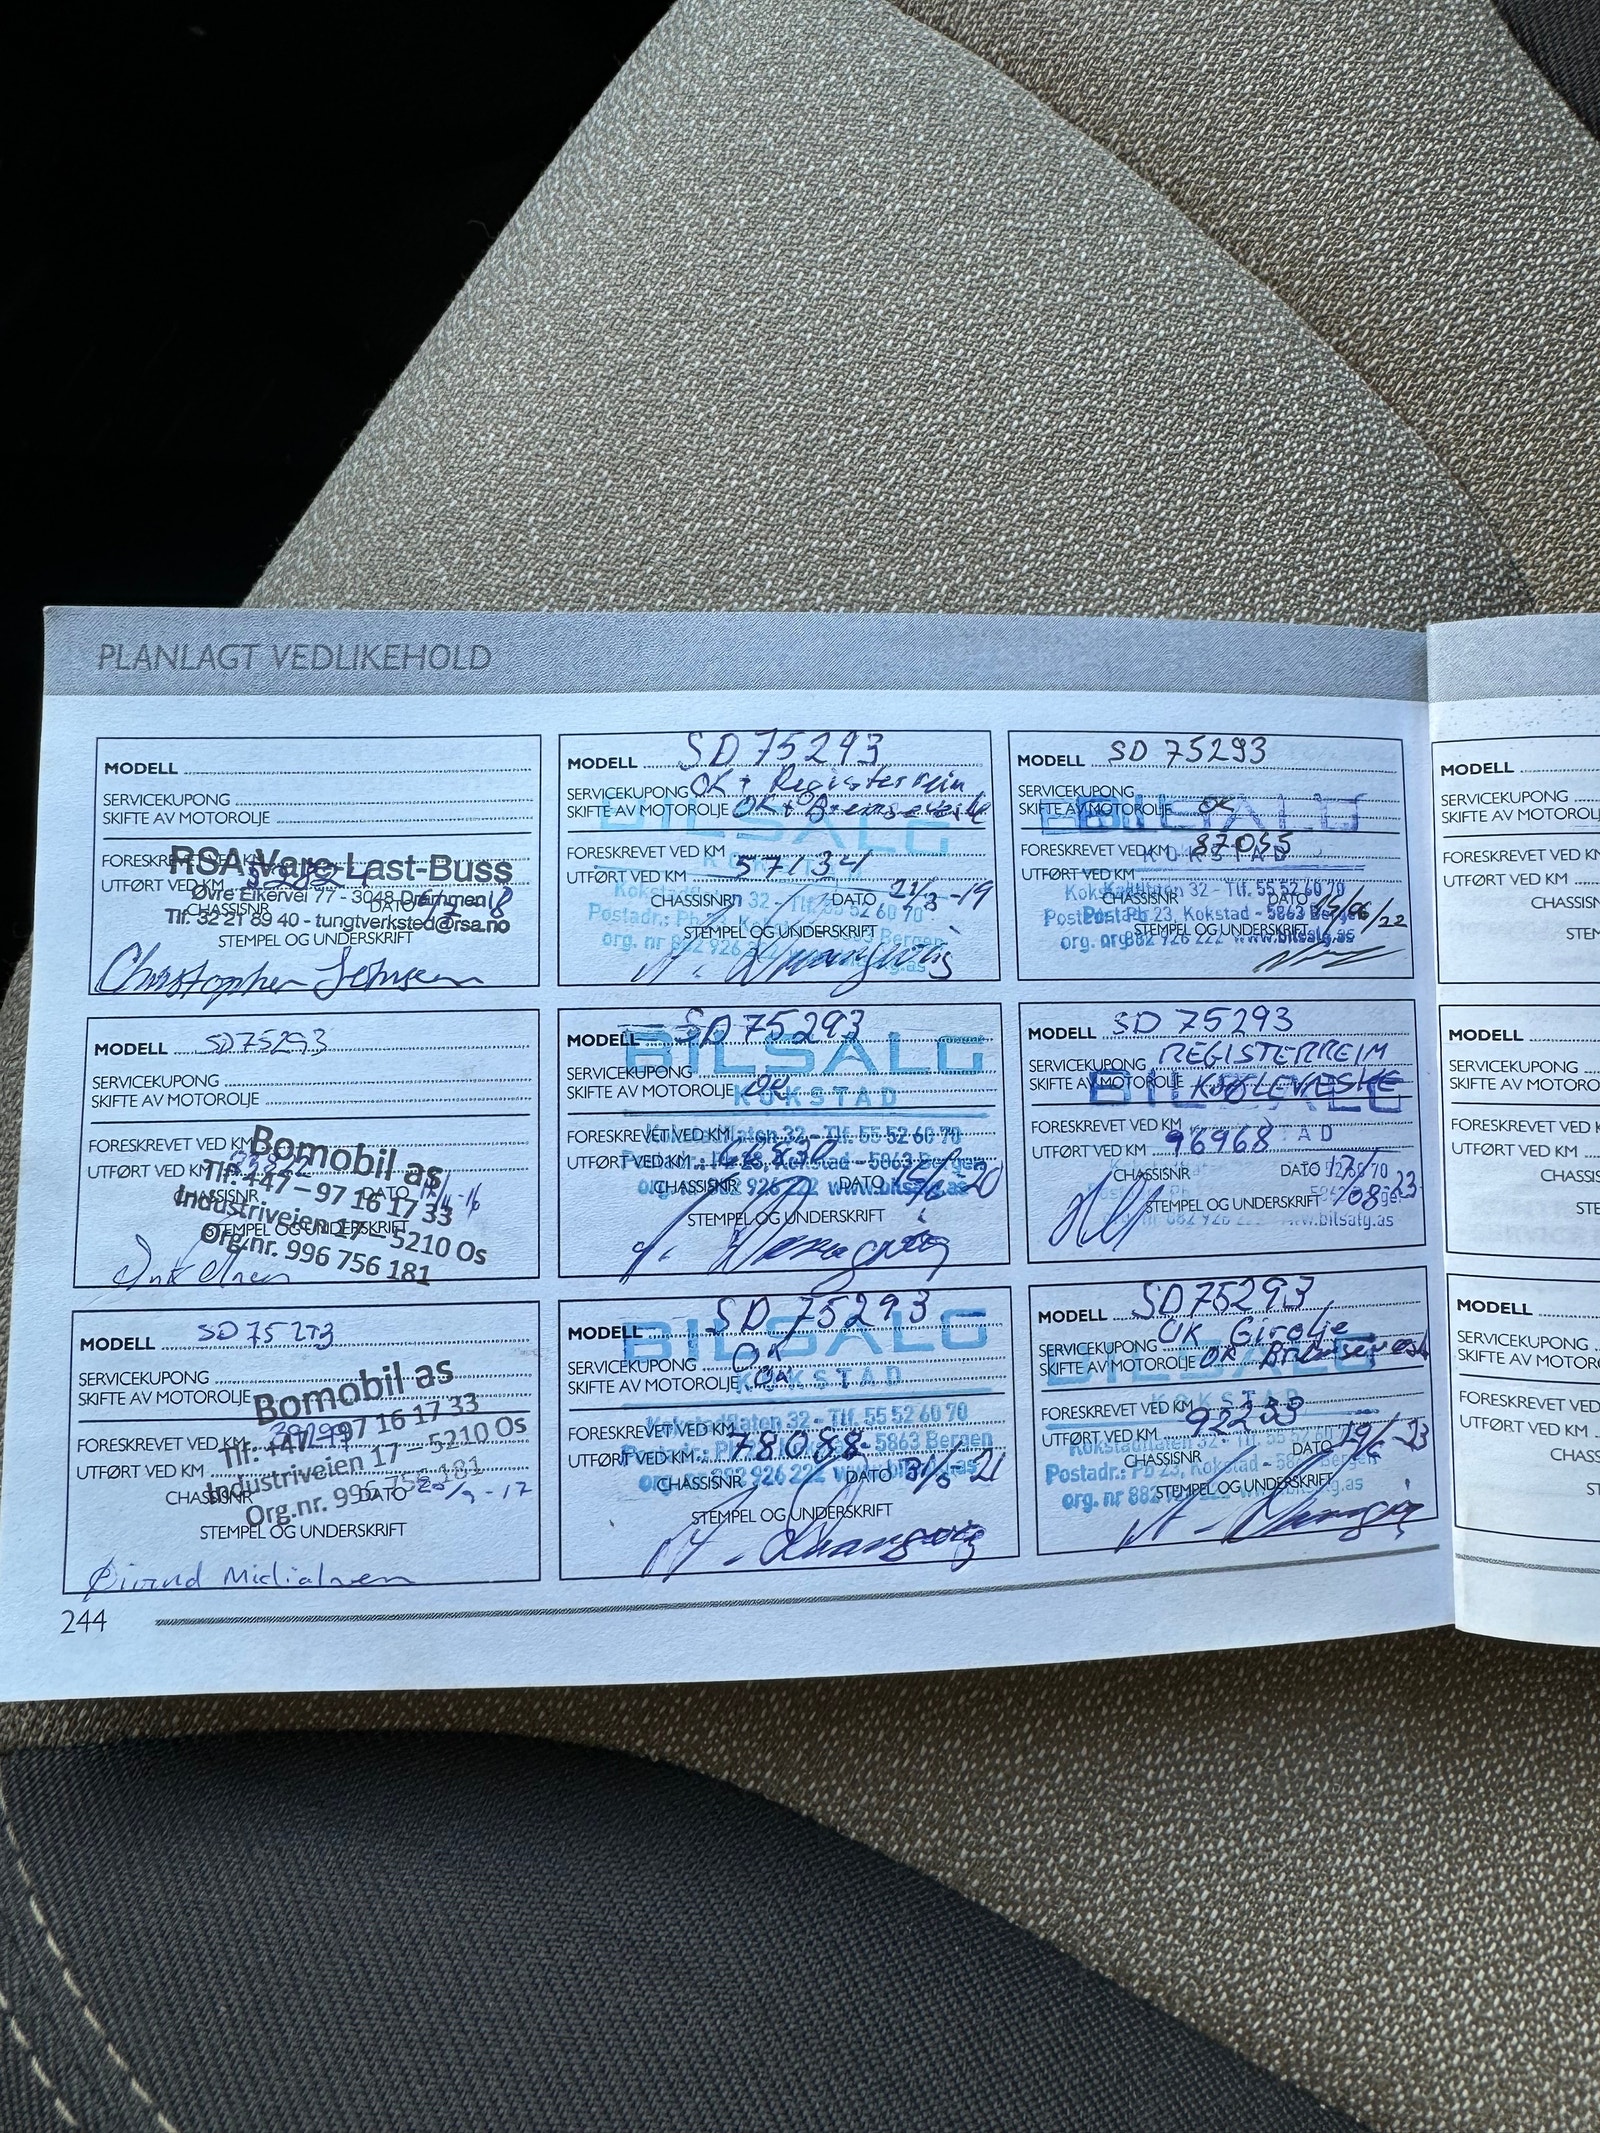 PLANLAGT VEDLIKEHOLD
MODELL
SERVICEKUPONG
SKIFTE AV MOTOROLJE
FORESKREVET VED KM
RSA Vare-Last-Buss
UTFØRT VED KM
Øvre Eikervei 77 - 3048 Drammen
CHASSISNR DATO
Tlf. 32 21 89 40 - tungtverksted@rsa.no
STEMPEL OG UNDERSKRIFT
MODELL SD75293
SERVICEKUPONG
SKIFTE AV MOTOROLJE
FORESKREVET VED KM
Bomobil as
UTFØRT VED KM
Tlf. +47 – 97 16 17 33
CHASSISNR DATO
Industriveien 17 – 5210 Os
STEMPEL OG UNDERSKRIFT
Org.nr. 996 756 181
MODELL SD75293
SERVICEKUPONG
SKIFTE AV MOTOROLJE
Bomobil as
FORESKREVET VED KM
Tlf. +47 – 97 16 17 33
UTFØRT VED KM
Industriveien 17 – 5210 Os
CHASSISNR DATO
Org.nr. 996 756 181
STEMPEL OG UNDERSKRIFT
244
MODELL SD 75293
SERVICEKUPONG OK + Registerreim
SKIFTE AV MOTOROLJE OK +
BILSALG
KOKSTAD
FORESKREVET VED KM
UTFØRT VED KM 57134
Kokstadflaten 32 - Tlf. 55 52 60 70
CHASSISNR DATO 21/3-19
Postadr.: Pb 23, Kokstad - 5863 Bergen
STEMPEL OG UNDERSKRIFT
org. nr 882 926 222 www.bilsalg.as
MODELL SD 75293
BILSALG
SERVICEKUPONG
SKIFTE AV MOTOROLJE OK
KOKSTAD
FORESKREVET VED KM
Kokstadflaten 32 - Tlf. 55 52 60 70
UTFØRT VED KM
Postadr.: Pb 23, Kokstad - 5863 Bergen
CHASSISNR DATO
org. nr 882 926 222 www.bilsalg.as
STEMPEL OG UNDERSKRIFT
MODELL SD 75293
BILSALG
SERVICEKUPONG OK
SKIFTE AV MOTOROLJE OK
KOKSTAD
FORESKREVET VED KM
Kokstadflaten 32 - Tlf. 55 52 60 70
UTFØRT VED KM 78088
Postadr.: Pb 23, Kokstad - 5863 Bergen
CHASSISNR DATO 31/5-21
org. nr 882 926 222 www.bilsalg.as
STEMPEL OG UNDERSKRIFT
MODELL SD 75293
SERVICEKUPONG
SKIFTE AV MOTOROLJE OK
BILSALG
FORESKREVET VED KM 87055
KOKSTAD
UTFØRT VED KM
Kokstadflaten 32 - Tlf. 55 52 60 70
CHASSISNR DATO 15/06/22
Postadr.: Pb 23, Kokstad - 5863 Bergen
STEMPEL OG UNDERSKRIFT
org. nr 882 926 222 www.bilsalg.as
MODELL SD 75293
SERVICEKUPONG REGISTERREIM
SKIFTE AV MOTOROLJE KJØLEVESKE
BILSALG
FORESKREVET VED KM
UTFØRT VED KM 96968
CHASSISNR DATO 17/08-23
STEMPEL OG UNDERSKRIFT
org. nr 882 926 222 www.bilsalg.as
MODELL SD75293
SERVICEKUPONG OK Girolje
SKIFTE AV MOTOROLJE OK
BILSALG
KOKSTAD
FORESKREVET VED KM 92233
UTFØRT VED KM
Kokstadflaten 32 - Tlf. 55 52 60 70
CHASSISNR DATO 19/6-23
Postadr.: Pb 23, Kokstad - 5863 Bergen
STEMPEL OG UNDERSKRIFT
org. nr 882 926 222 www.bilsalg.as
MODELL
SERVICEKUPONG
SKIFTE AV MOTOROLJ
FORESKREVET VED KM
UTFØRT VED KM
CHASSISN
STEM
MODELL
SERVICEKUPONG
SKIFTE AV MOTORO
FORESKREVET VED K
UTFØRT VED KM
CHASSIS
STE
MODELL
SERVICEKUPONG
SKIFTE AV MOTOR
FORESKREVET VED
UTFØRT VED KM
CHASS
ST